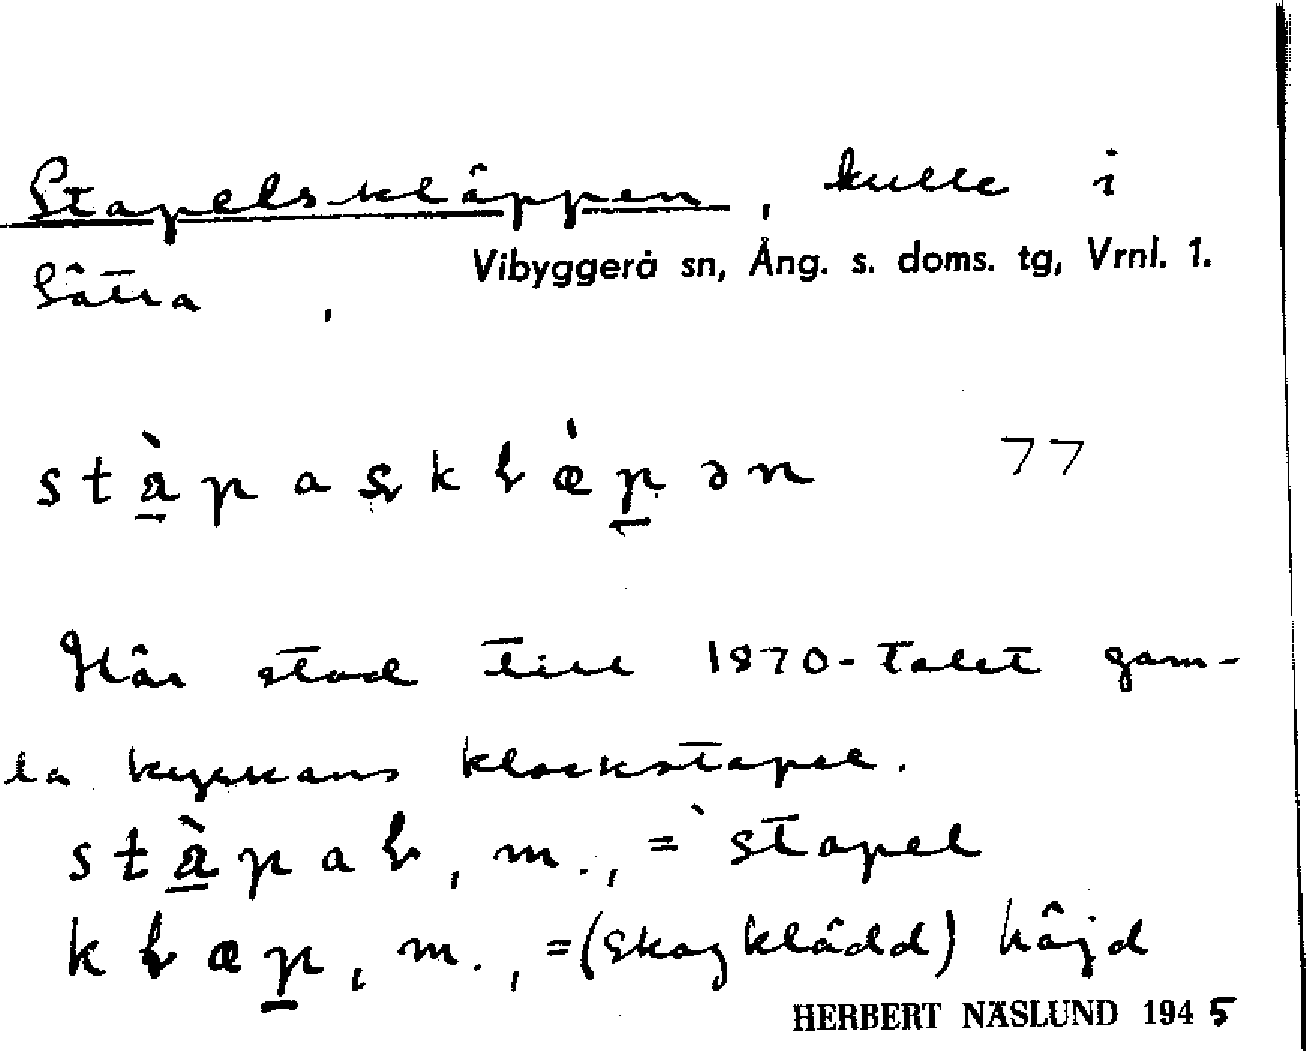 Stapelskläppen, kulle i
Vibyggerå sn, Ång. s. doms. tg, Vrnl. 1.
Sätra,
77
Här stod till 1870-talet gam-
la kyrkans klockstapel.
m., = stapel
m., =(skogklädd) höjd
HERBERT NÄSLUND 1945